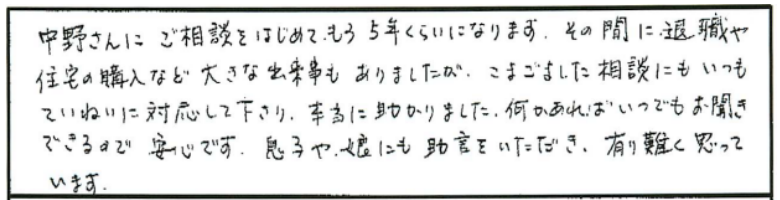 中野さんに ご相談をはじめて、もう5年くらいになります。その間に、退職や
住宅の購入など 大きな出来事も ありましたが、こまごました相談にも いつも
ていねいに対応して下さり、本当に助かりました。何かあれば いつでもお聞き
できるので 安心です。息子や、娘にも 助言をいただき、有り難く思って
います。